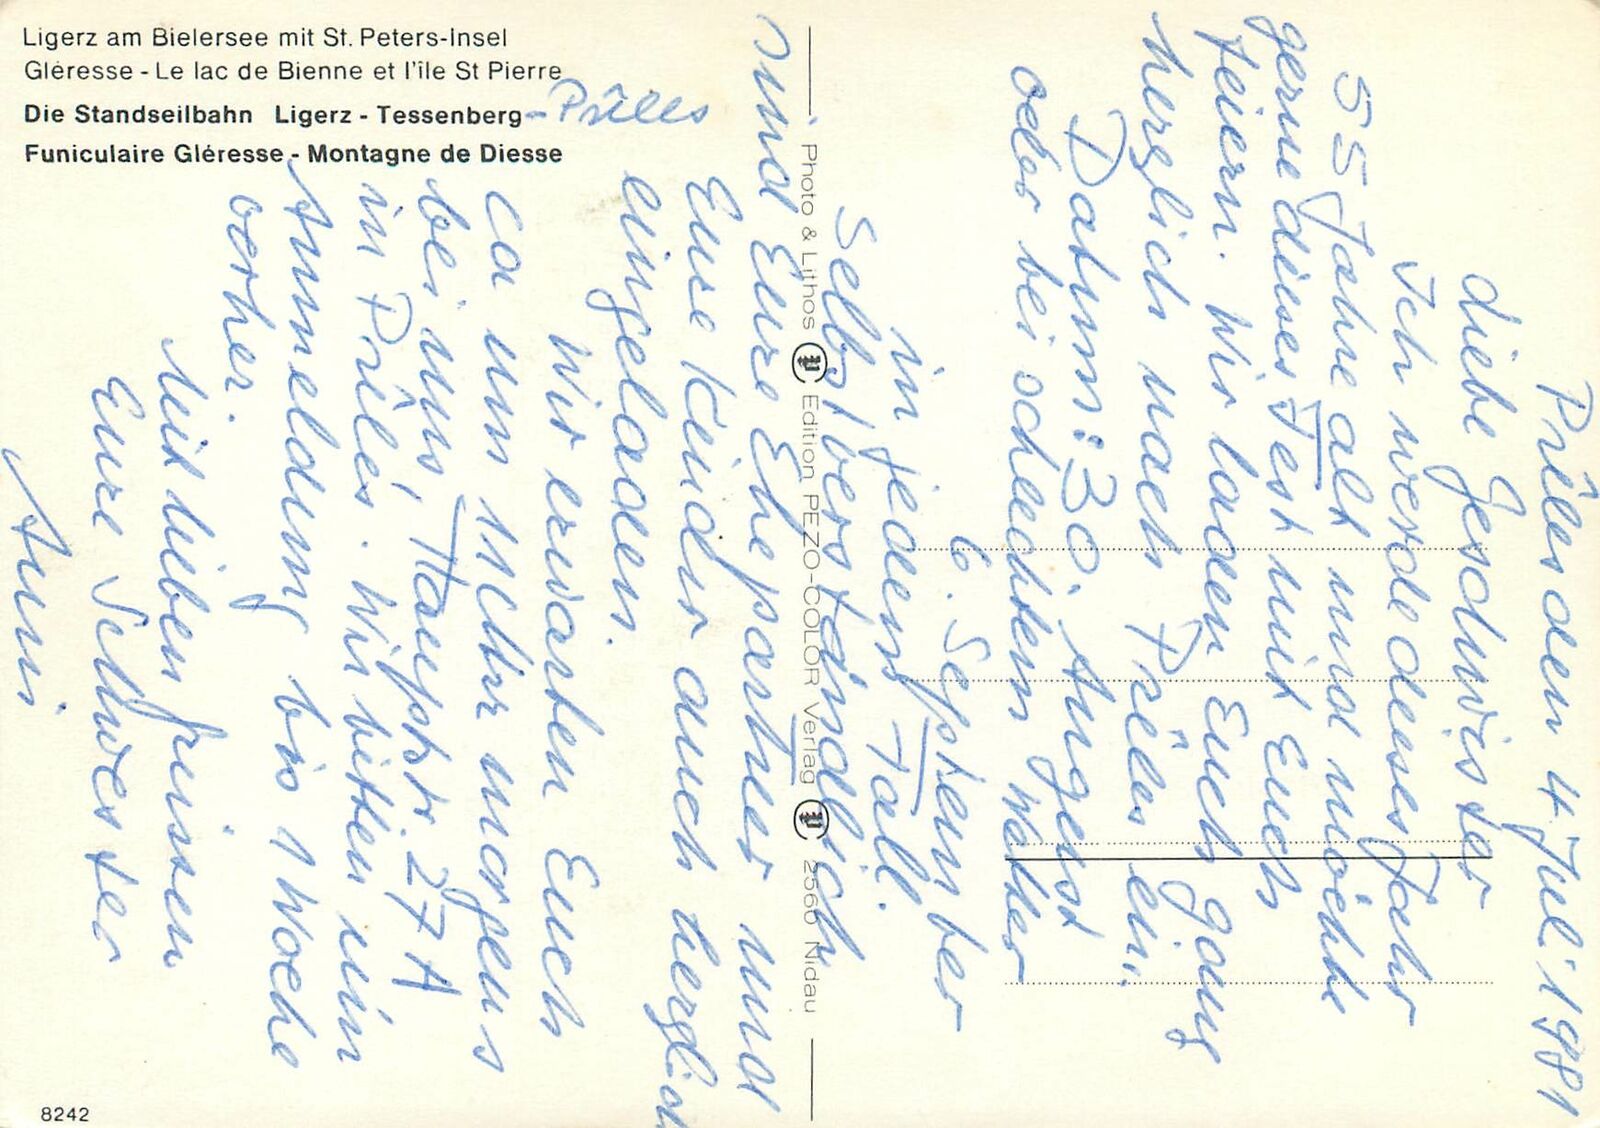 Ligerz am Bielersee mit St. Peters-Insel
Gléresse - Le lac de Bienne et l'île St Pierre
Die Standseilbahn Ligerz - Tessenberg - Prêles
Funiculaire Gléresse - Montagne de Diesse
Photo & Lithos Edition PEZO-COLOR Verlag 2560 Nidau
8242
Prêles den 4. Juli 1981
Liebe Geschwister
Ich werde dieses Jahr
55 Jahre alt und möchte
gerne dieses Fest mit Euch
feiern. Wir laden Euch ganz
herzlich nach Prêles ein.
Datum: 30. August
oder bei schlechtem Wetter
6. September
in jedem Fall.
Selbstverständlich
sind Eure Ehepartner und
Eure Kinder auch herzlich
eingeladen.
Wir erwarten Euch
ca um 11 Uhr morgens
bei uns, Hauptstr. 27A
in Prêles. Wir bitten um
Anmeldung bis 1 Woche
vorher.
Mit lieben Grüssen
Eure Schwester
Anni